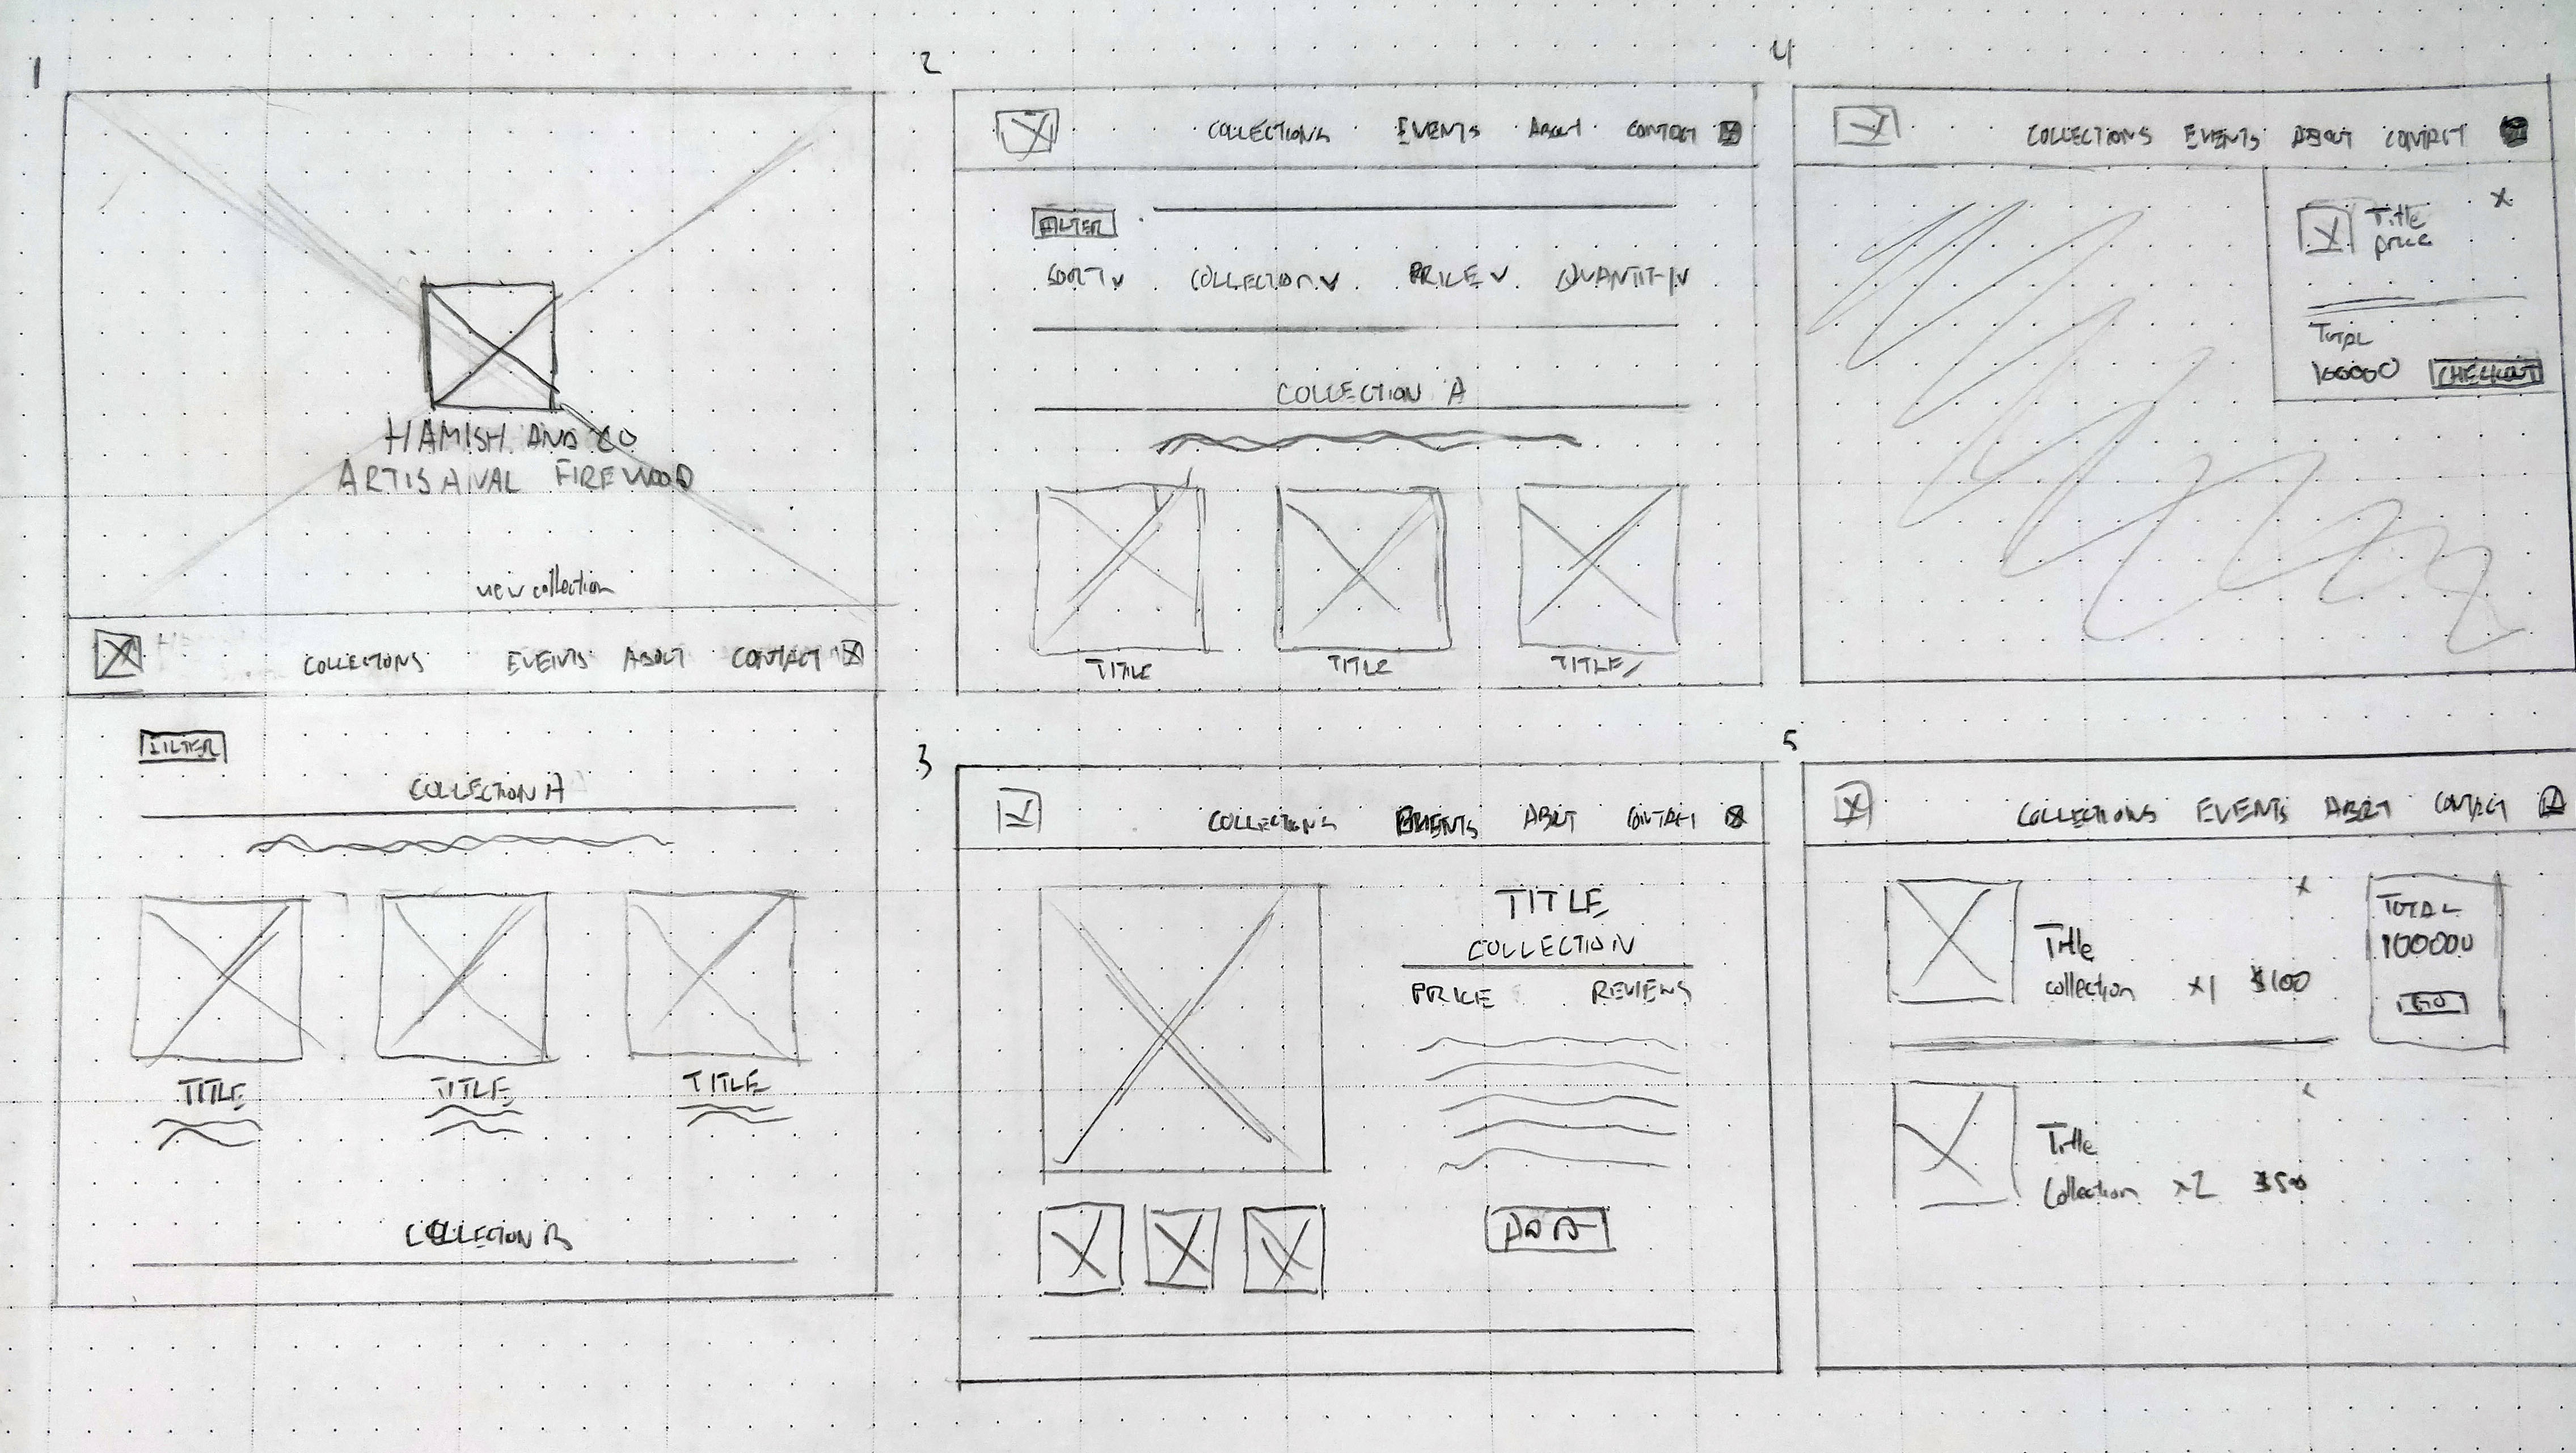 1
HAMISH AND CO
ARTISANAL FIREWOOD
view collection
COLLECTIONS EVENTS ABOUT CONTACT
FILTER
COLLECTION A
TITLE TITLE TITLE
COLLECTION B
2
COLLECTIONS EVENTS ABOUT CONTACT
FILTER
SORT COLLECTION PRICE QUANTITY
COLLECTION A
TITLE TITLE TITLE
3
COLLECTIONS EVENTS ABOUT CONTACT
TITLE
COLLECTION
PRICE REVIEWS
4
COLLECTIONS EVENTS ABOUT CONTACT
Title x
price
TOTAL
100000 CHECKOUT
5
COLLECTIONS EVENTS ABOUT CONTACT
x
Title
collection x1 $100
TOTAL
100000
GO
x
Title
Collection x2 $50